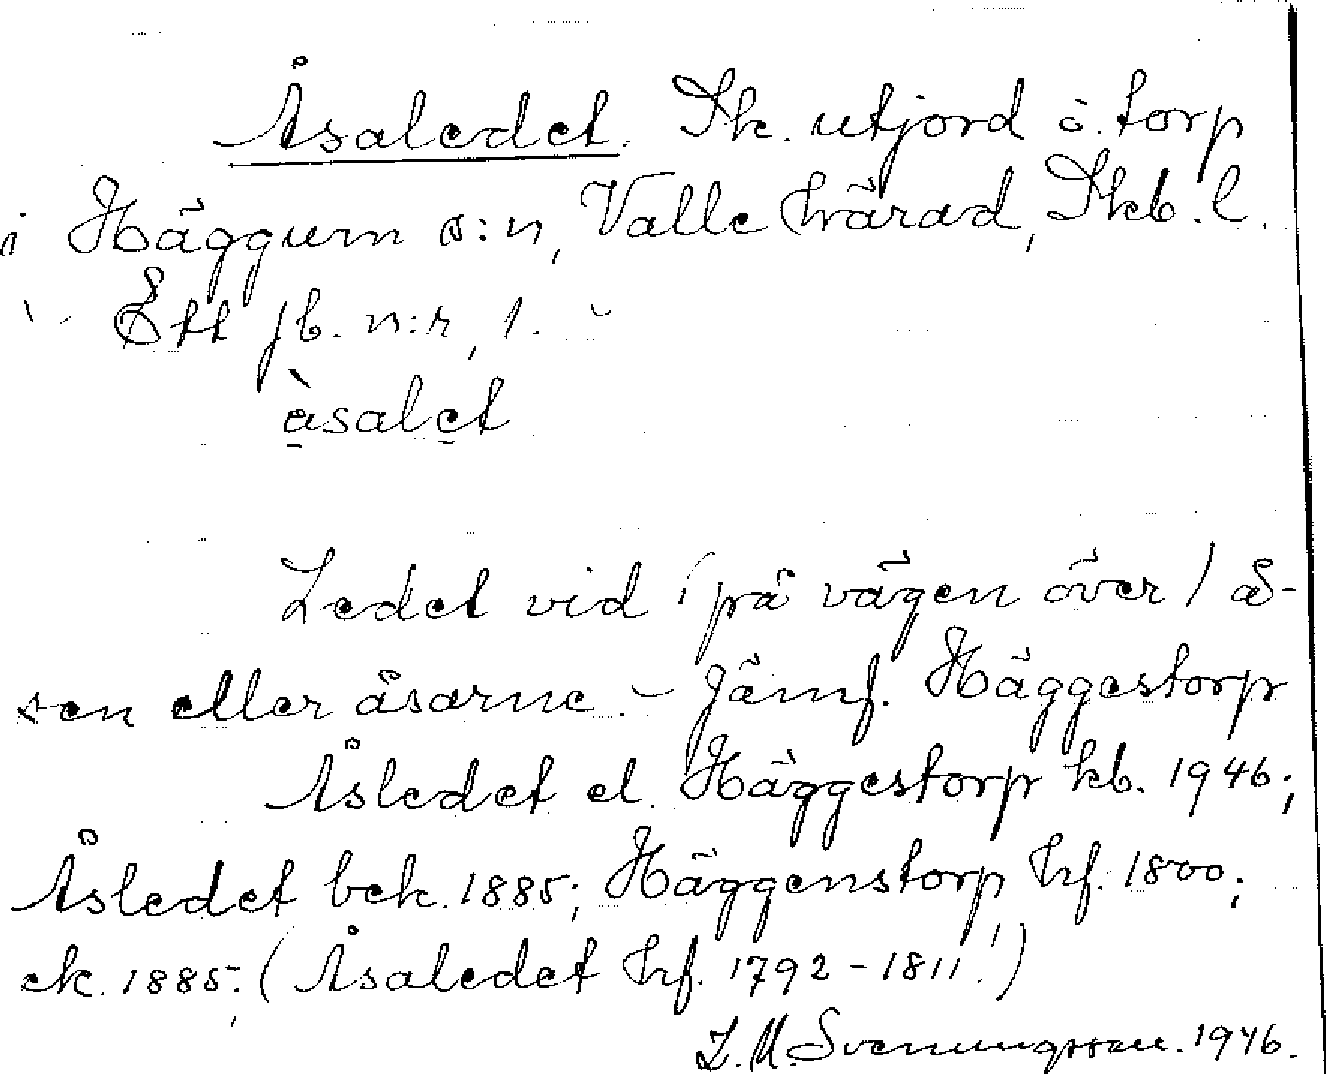 Åsaledet. Sk. utjord o. torp
i Häggum s:n, Valle härad, Skb. l.
Ett jb. n:r, 1. -
åsalet
Ledet vid (på vägen över) å-
sen eller åsarne. - Jämf. Häggestorp
Åsledet el. Häggestorp kb. 1946;
Åsledet bek. 1885; Häggenstorp hf. 1800;
ek. 1885; (Åsaledet hf. 1792-1811!)
L. M. Svenungsson. 1946.